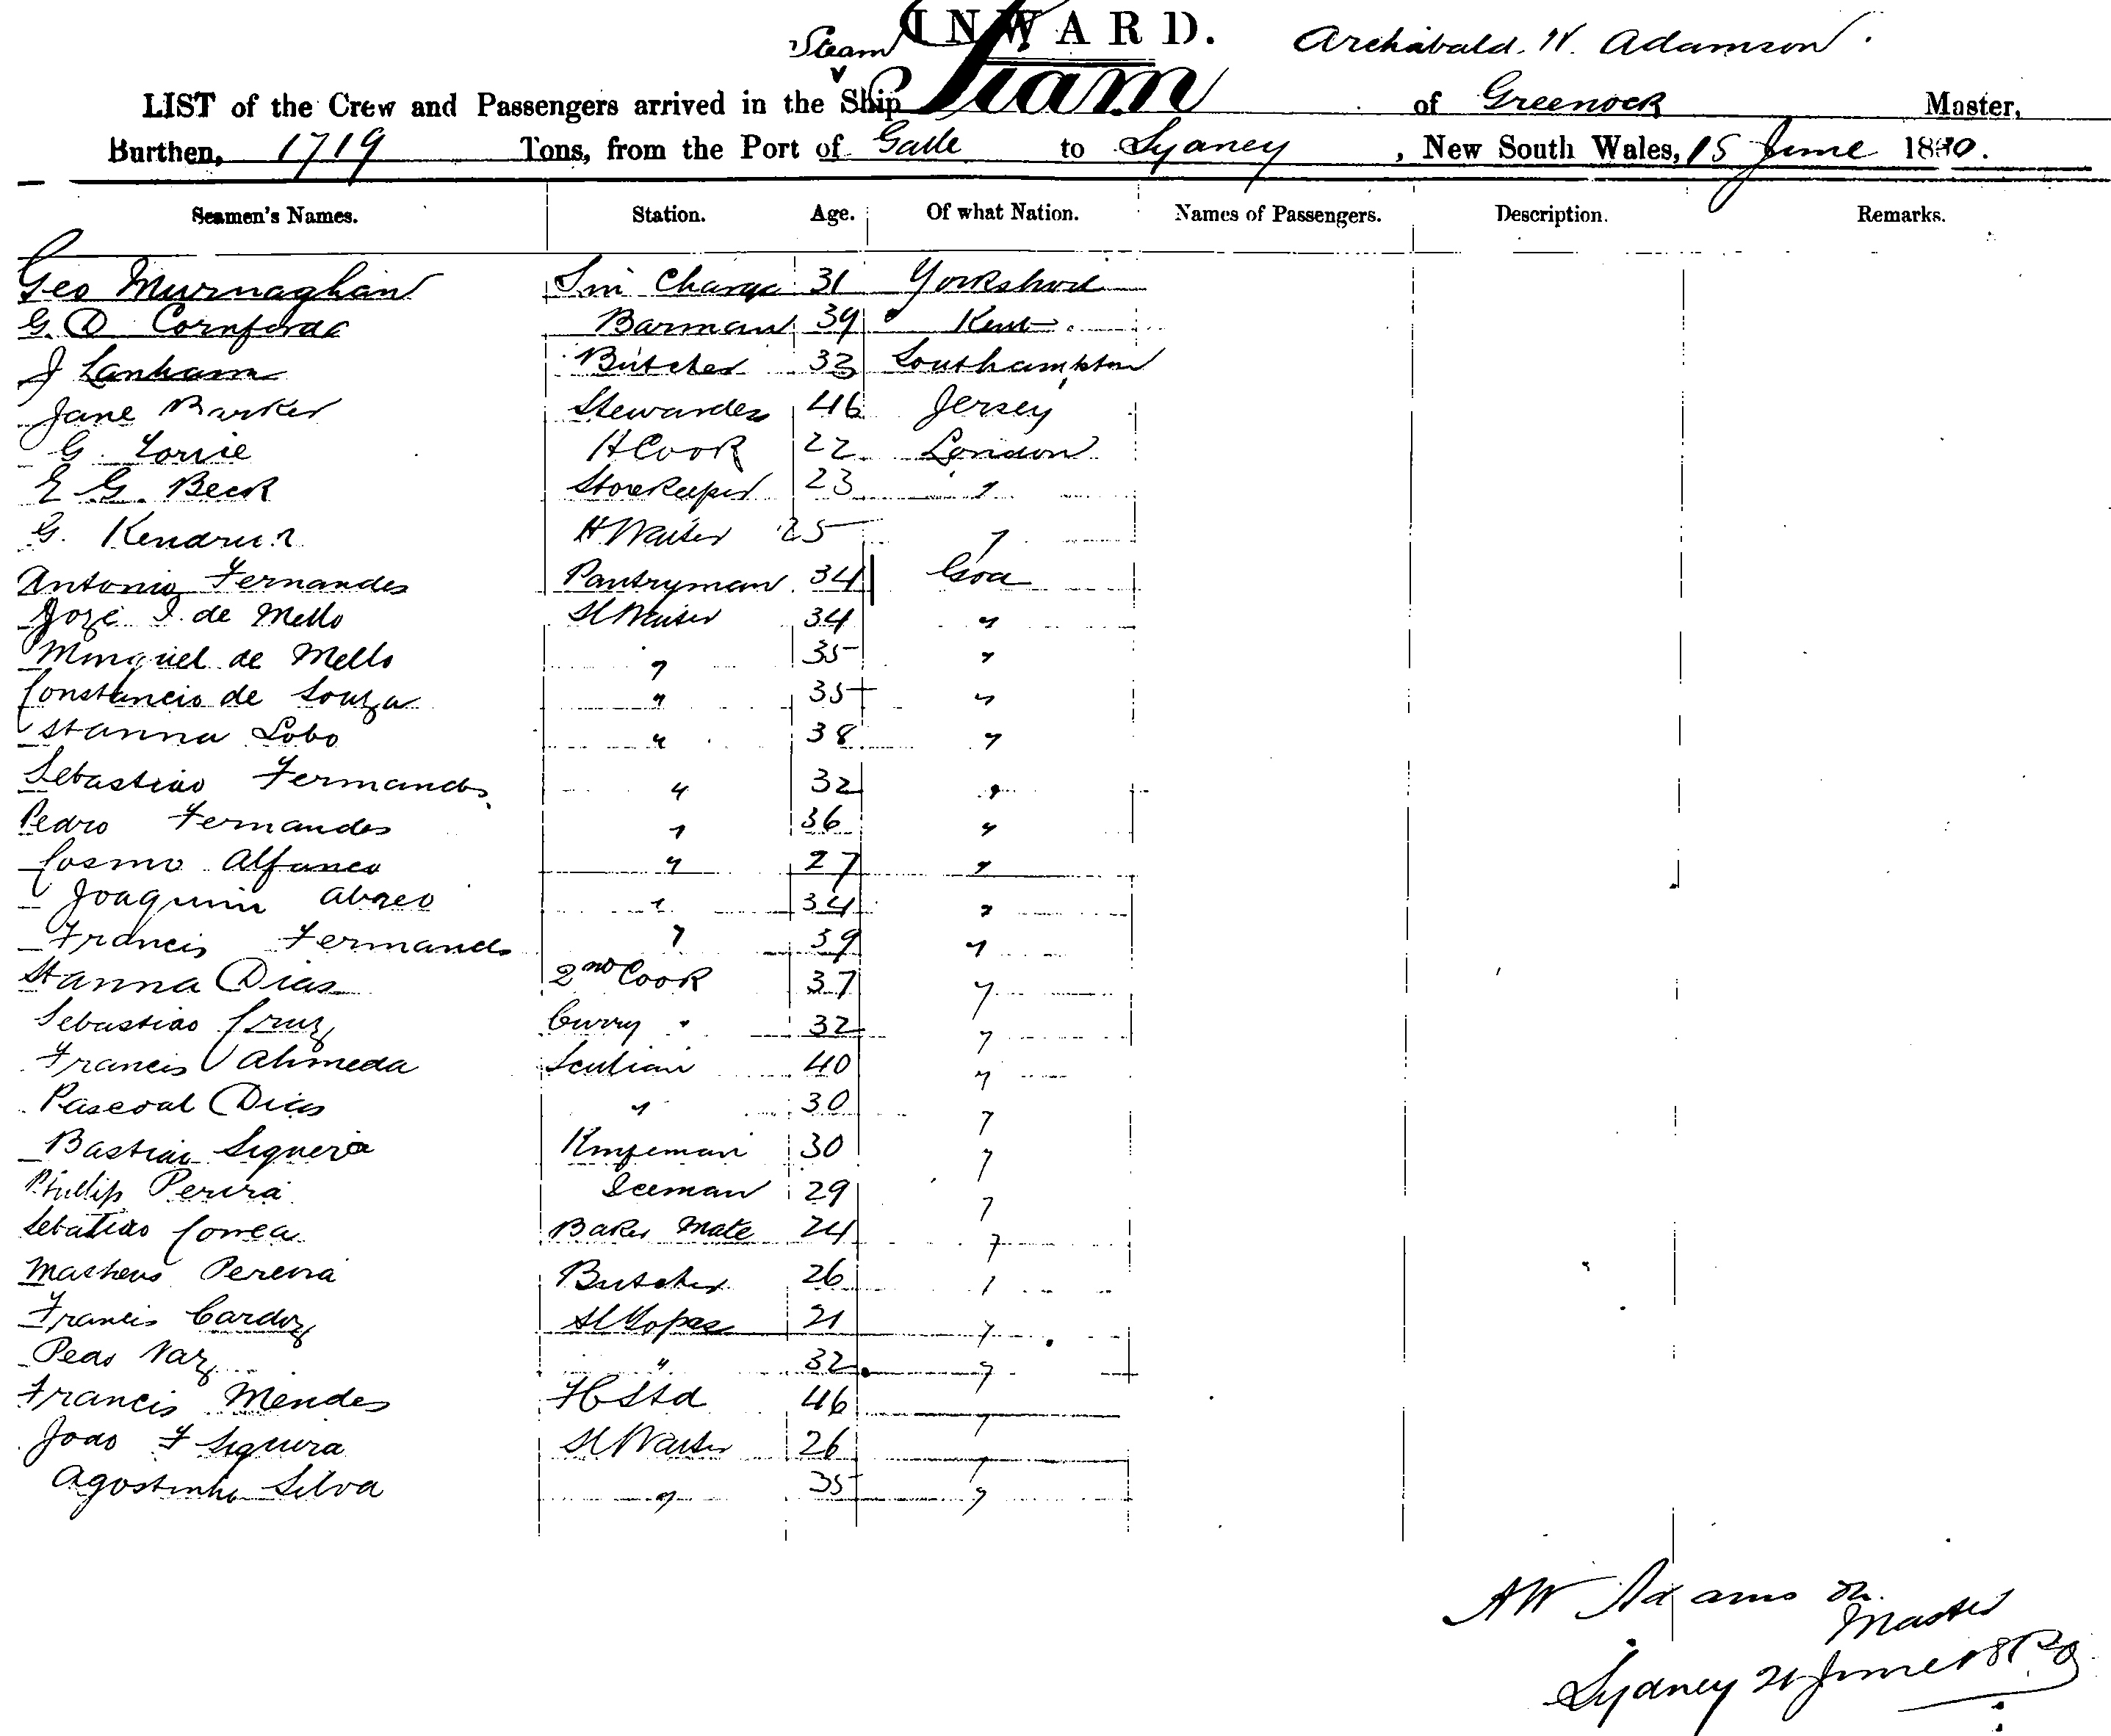 INWARD.
Steam Archibald. W. Adamson.
LIST of the Crew and Passengers arrived in the Ship Siam of Greenock Master,
Burthen, 1719 Tons, from the Port of Galle to Sydney, New South Wales, 15 June 1880.
Seamen's Names. Station. Age. Of what Nation. Names of Passengers. Description. Remarks.
Geo Murnaghan In Charge 31 Yorkshire
G. D Cornforde Barman 39 Kent
J Lanham Butcher 33 Southampton
Jane Barker Stewardess 46 Jersey
G. H Cook 22 London
E G. Beck Storekeeper 23 "
G. H Waiter 25 "
Antonio Fernandes Pantryman 34 Goa
Joze I. de Mello Sl Waiter 34 "
Minguel de Mello " 35 "
Constancio de Souza " 35 "
Stanna Lobo " 38 "
Sebastiao Fernandes " 32 "
Pedro Fernandes " 36 "
Cosmo Alfonco " 27 "
Joaquim Abreo " 34 "
Francis Fernandes " 39 "
Stanna Dias 2nd Cook 37 "
Sebastiao Cruz Curry " 32 "
Francis Almeda 40 "
Pascoal Dias " 30 "
Bastiao Siqueira Knifeman 30 "
Phillip Perira Iceman 29 "
Sebastiao Correa Baker Mate 24 "
Matheus Pereira Butcher 26 "
Francis Cardoz Sl Topas 21 "
Pedo Vaz " 32 "
Francis Mendes 46 "
Joao F Siqueira Sl Waiter 26 "
Agostinho Silva " 35 "
AW Adamson
Master
Sydney 21 June 1880